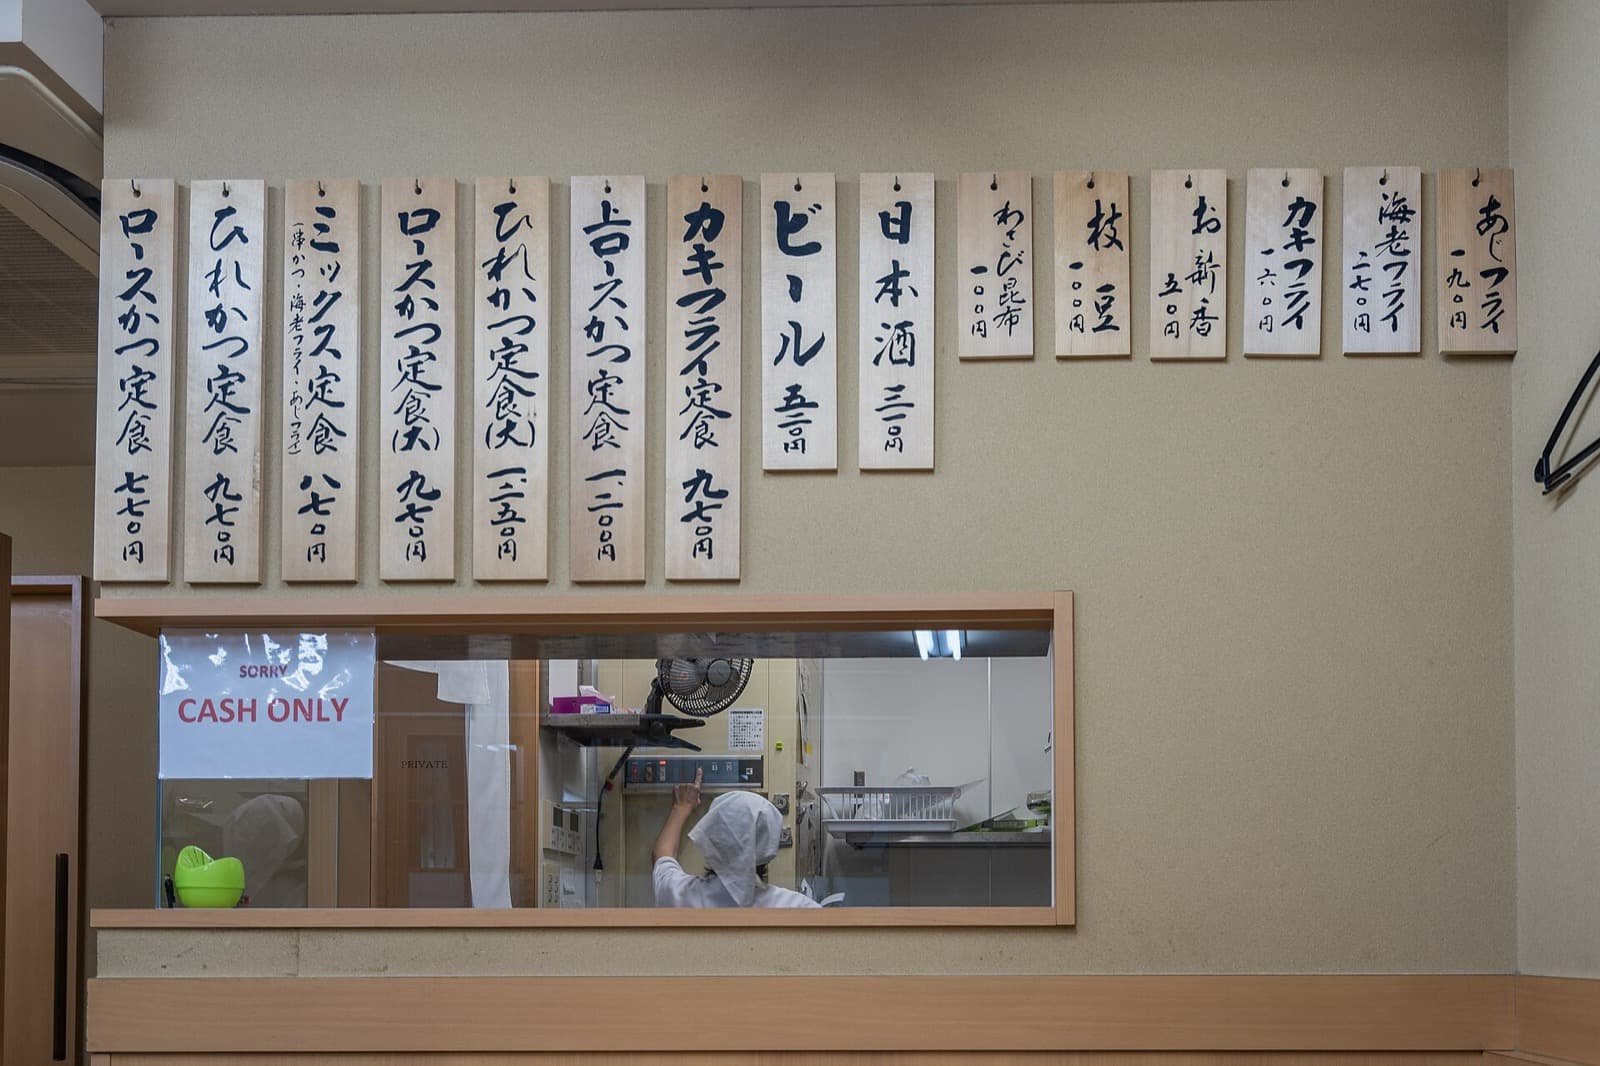 ロースかつ定食 七七〇円
ひれかつ定食 九七〇円
ミックス定食 八七〇円
(串かつ・海老フライ・あじフライ)
ロースかつ定食(大) 九七〇円
ひれかつ定食(大) 一、二五〇円
上ロースかつ定食 一、二〇〇円
カキフライ定食 九七〇円
ビール 五二〇円
日本酒 三一〇円
わさび昆布
一〇〇円
枝豆
一〇〇円
お新香
五〇円
カキフライ
一六〇円
海老フライ
二七〇円
あじフライ
一九〇円
SORRY
CASH ONLY
PRIVATE